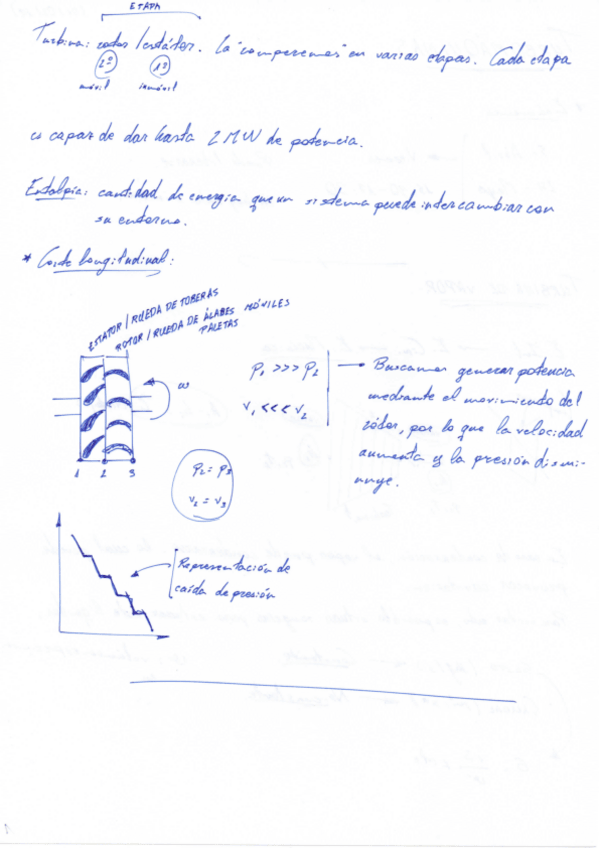 ETAPA
Turbina: rotor / estátor. La "comparemos" en varias etapas. Cada etapa
2º 1º
móvil inmóvil
es capaz de dar hasta 2 MW de potencia.
Entalpía: cantidad de energía que un sistema puede intercambiar con
su entorno.
* Corte longitudinal:
ESTATOR / RUEDA DE TOBERAS
ROTOR / RUEDA DE ÁLABES MÓVILES
PALETAS
ω
P1 >>> P2
V1 <<< V2
Buscamos generar potencia
mediante el movimiento del
rótor, por lo que la velocidad
aumenta y la presión dismi-
nuye.
1 2 3
P2 = P3
V2 = V3
Representación de
caída de presión